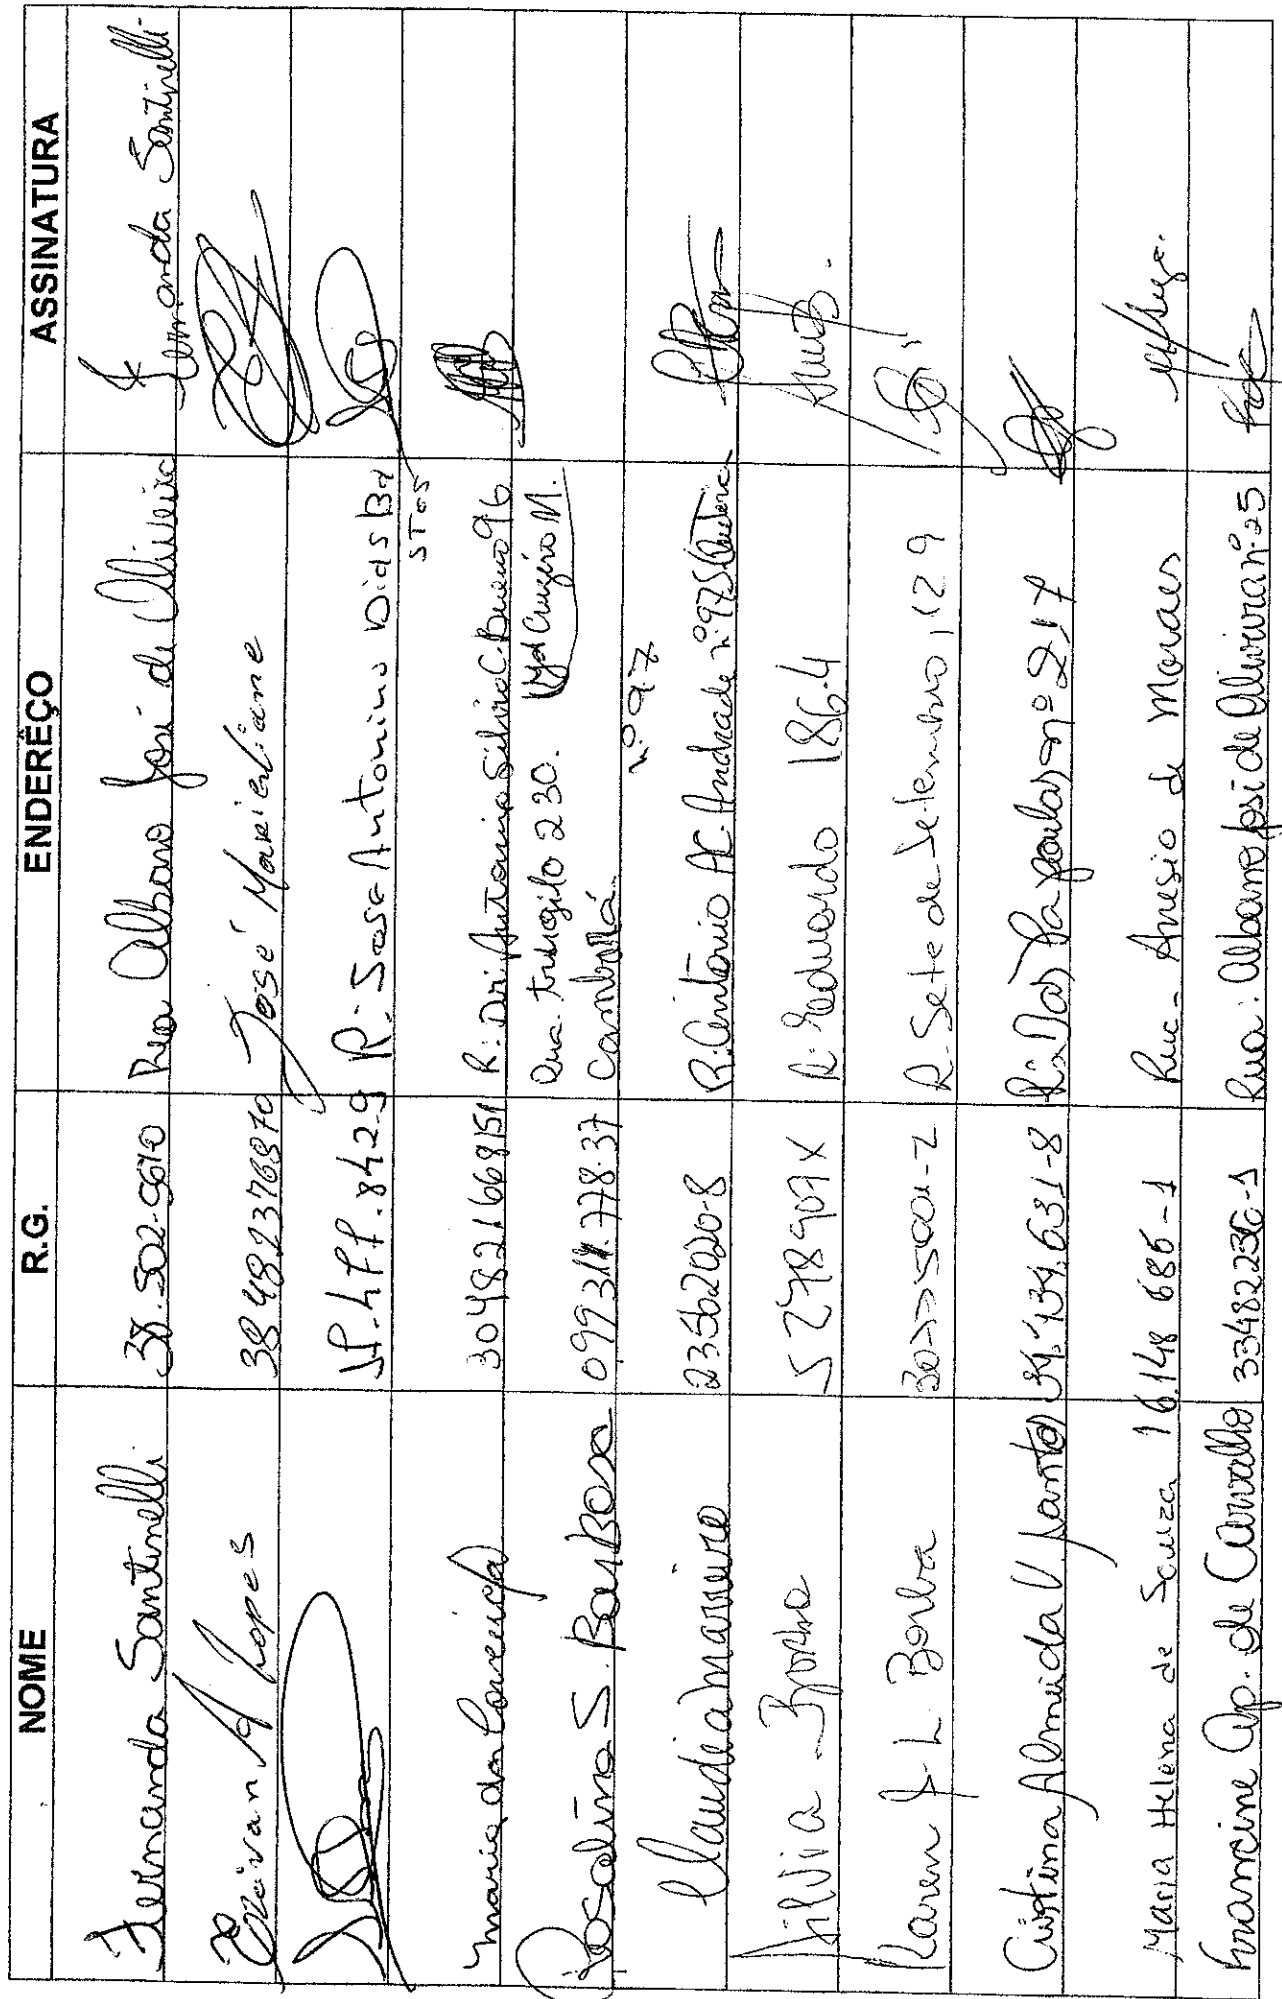 NOME R.G. ENDERÊÇO ASSINATURA
Fernanda Santinelli 38.502-9610 Rua Albano José de Oliveira Fernanda Santinelli
A Lopes 38482376870 José
R: Antonino Dias Ba
stos
Maria da Conceição 304821668151 R: Dr. Antonio Silvio C. Bueno 96
Rosalina S. BarBosa 099311.778.37 Rua. 230.
Cambará
Claudia mariano 23562020-8 R. Antonio AC. Andrade nº 975
nº 97
Silvia Borba 5 278 907 X R: Eduardo 186.4
Karen L Borba R. Sete de Setembro, 129
Cristina Almeida V. Santos 34.134.631-8 R: Das Papoulas nº 217
Maria Helena de Souza 16.148 686-1 Rua - Anesio de Moraes
Francine Ap. de Carvalho 33482236-1 Rua: Albano José de Oliveira nº 25